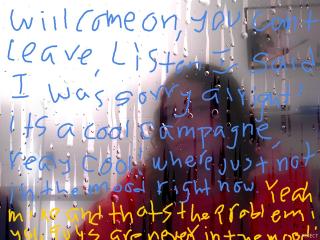 will come on, you can't
leave, Listen I said
I was sorry alright
its a cool campagne,
really cool where just not
in the mood right now. Yeah
mike and thats the problem i
you guys are never in the mood